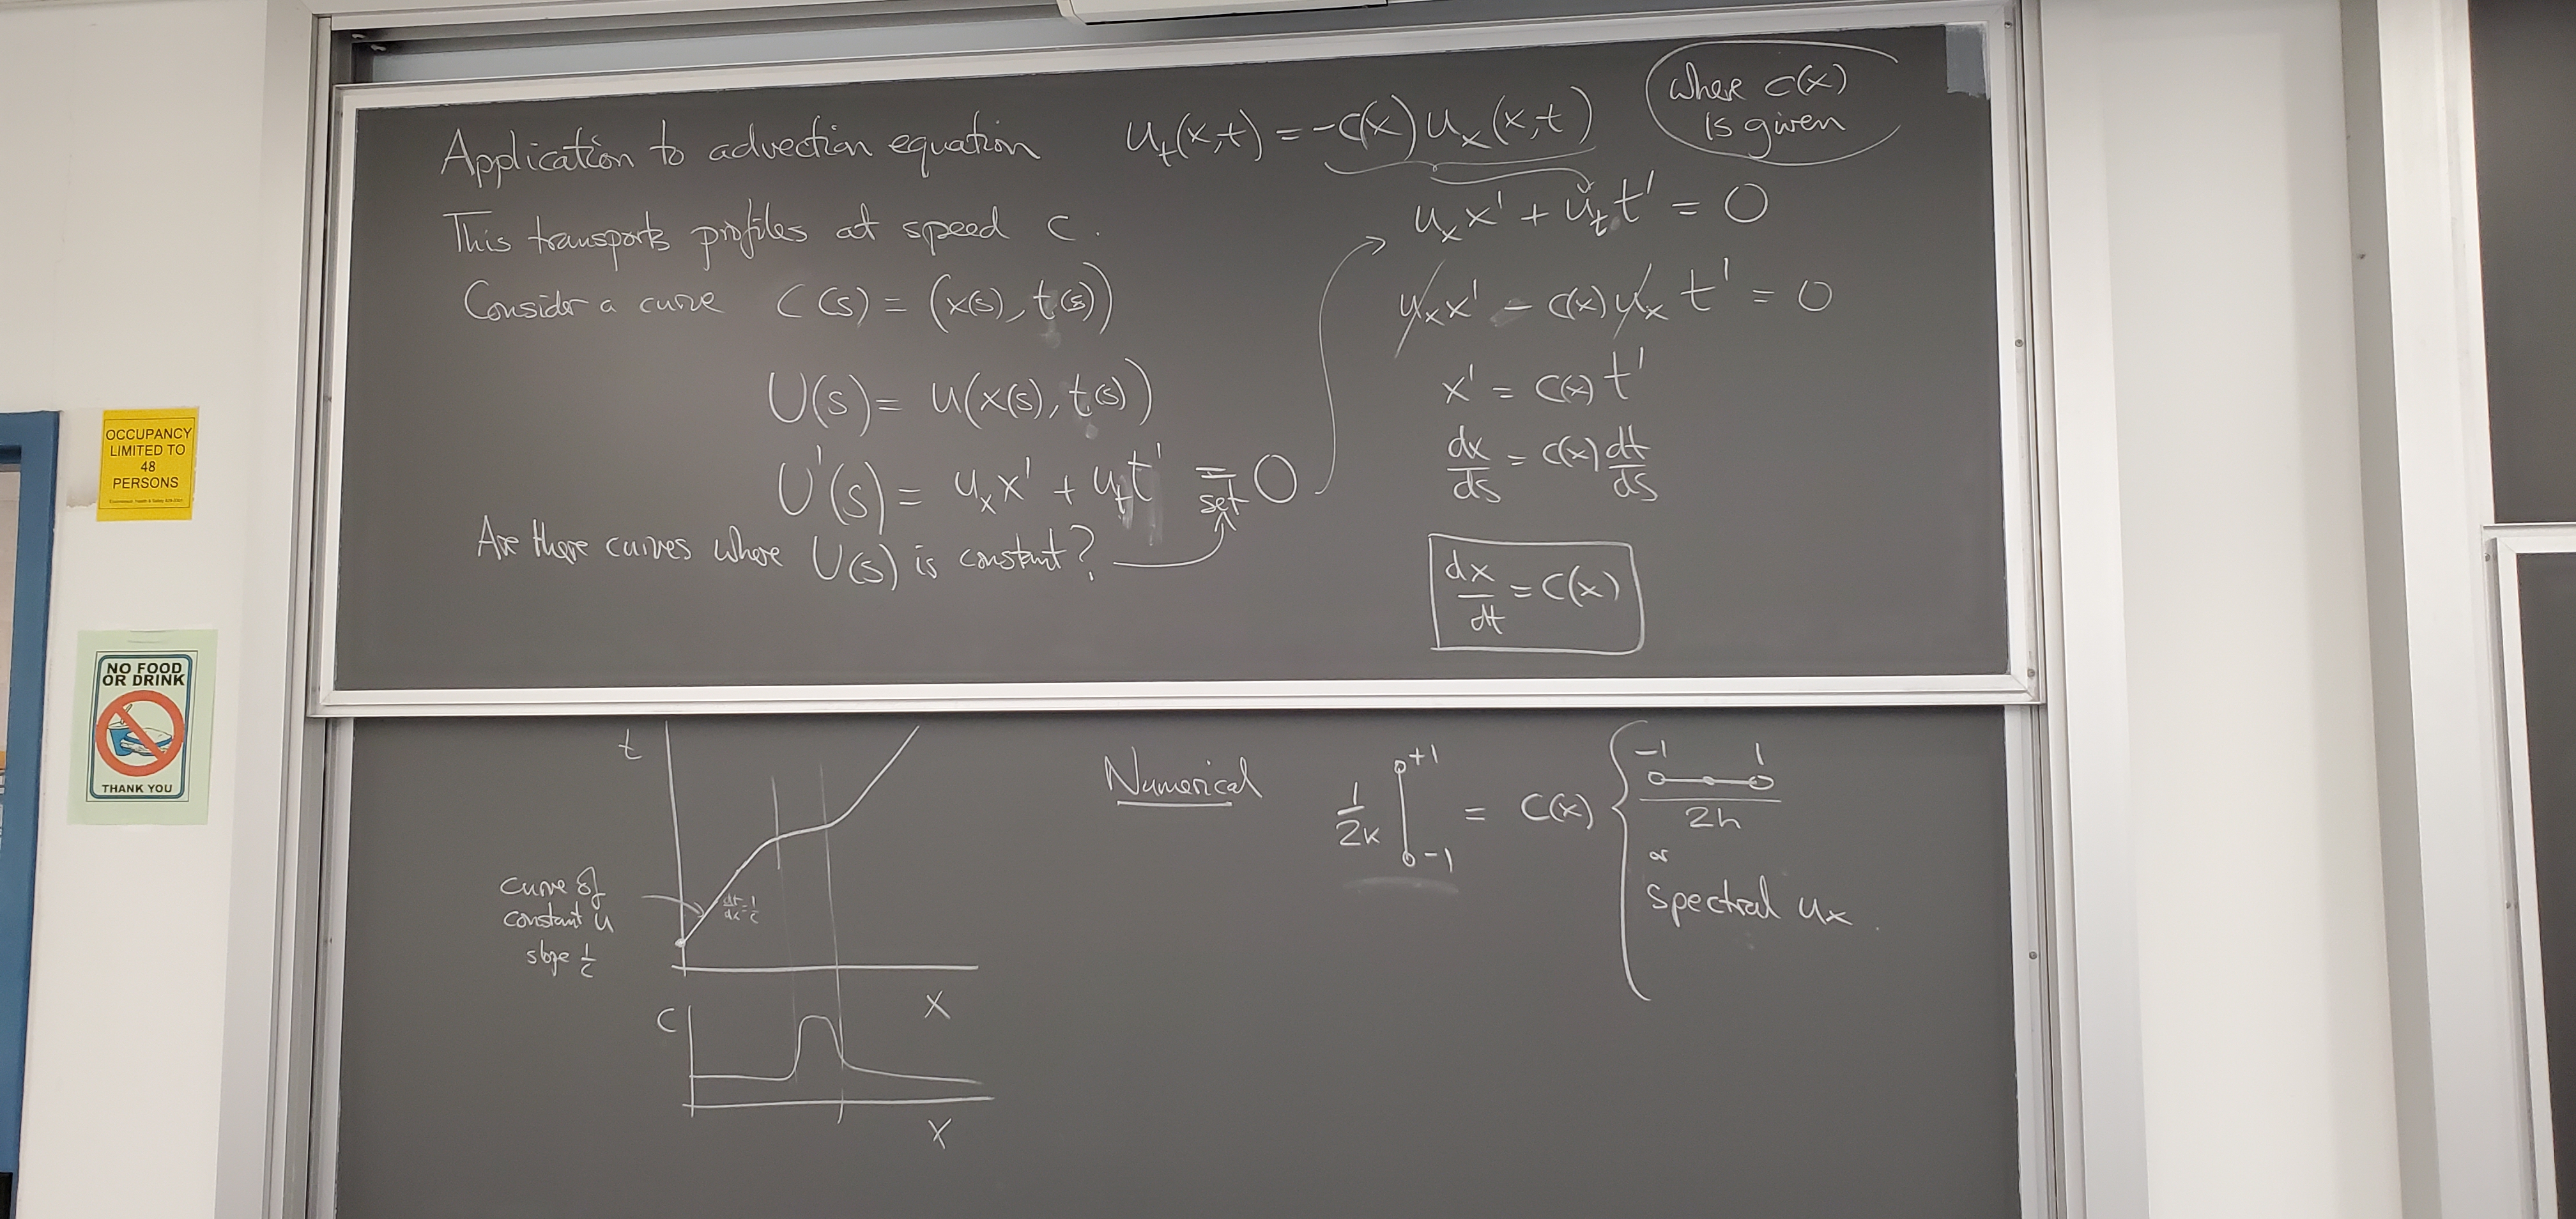 Application to advection equation u_t(x,t) = -c(x) u_x(x,t)
where c(x)
is given
This transports profiles at speed c.
Consider a curve C(s) = (x(s), t(s))
U(s) = u(x(s), t(s))
U'(s) = u_x x' + u_t t' = 0
set
Are there curves where U(s) is constant?
u_x x' + u_t t' = 0
u_x x' - c(x) u_x t' = 0
x' = c(x) t'
dx/ds = c(x) dt/ds
dx/dt = c(x)
t
curve of
constant u
slope 1/c
dt/dx = 1/c
x
c
x
Numerical
1/2k +1 -1 = c(x) { -1 1
2h
or
spectral u_x.
OCCUPANCY
LIMITED TO
48
PERSONS
NO FOOD
OR DRINK
THANK YOU